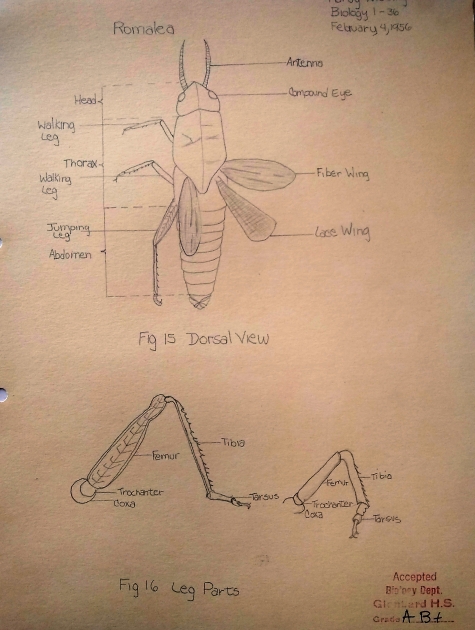 Biology 1-36
February 4, 1956
Romalea
Antenna
Compound Eye
Head
Walking
Leg
Thorax
Walking
Leg
Fiber Wing
Jumping
Leg
Lace Wing
Abdomen
Fig 15 Dorsal View
Tibia
Femur
Trochanter
Coxa
Tarsus
Femur
Tibia
Trochanter
Coxa
Tarsus
Fig 16 Leg Parts
Accepted
Biology Dept.
Glenbard H.S.
Grade A B+